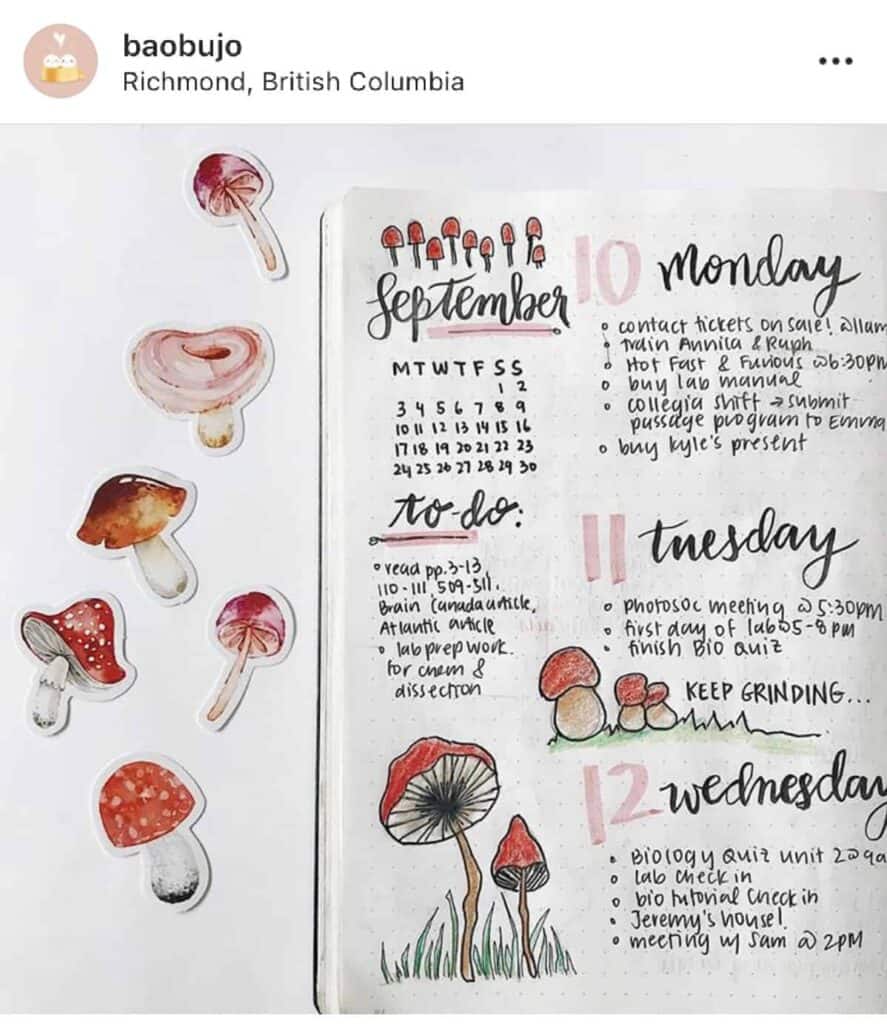 baobujo
Richmond, British Columbia
September
M T W T F S S
1 2
3 4 5 6 7 8 9
10 11 12 13 14 15 16
17 18 19 20 21 22 23
24 25 26 27 28 29 30
to-do:
read pp.3-13,
110-111, 509-511.
Brain Canada article,
Atlantic article
lab prep work.
for chem &
dissection
10 Monday
contact tickets on sale! @11am
train Annika & Ruph
Hot Fast & Furious @6:30pm
buy lab manual
collegia shift → submit
passage program to Emma
buy kyle's present
11 tuesday
photosoc meeting @5:30pm
first day of lab @5-8pm
finish Bio quiz
KEEP GRINDING...
12 wednesday
Biology Quiz unit 2@9a
lab check in
bio tutorial check in
Jeremy's house!
meeting w/ Sam @ 2PM